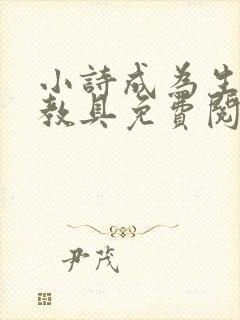 小詩成為生
教具免費閱
尹茂